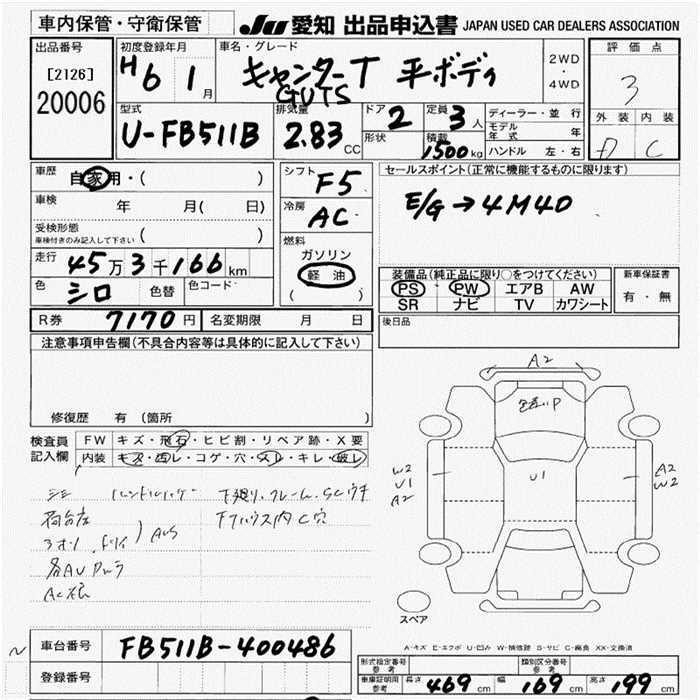 車内保管・守衛保管 JU 愛知 出品申込書 JAPAN USED CAR DEALERS ASSOCIATION
出品番号 初度登録年月 車名・グレード 評価点
[2126] H6 1月 キャンターT 平ボディ 2WD・4WD 3
20006 GUTS
型式 排気量 ドア 2 定員 3人 ディーラー・並行 外装 内装
U-FB511B 2.83CC 形状 積載 1500kg モデル年式 年 D C
ハンドル 左・右
車歴 自家用・( ) シフト F5 セールスポイント(正常に機能するものに限ります)
車検 年 月( 日) 冷房 AC E/G→4M40
受検形態 ( )
車検付きのみ記入して下さい
燃料 ガソリン 軽油 ( )
走行 45万3千166km 装備品(純正品に限り○をつけてください) 新車保証書
色 シロ 色替 色コード PS PW エアB AW 有・無
SR ナビ TV カワシート
R券 7170円 名変期限 月 日 後日品
注意事項申告欄(不具合内容等は具体的に記入して下さい)
A2
修復歴 有(箇所
検査員記入欄 FW キズ・飛石・ヒビ割・リペア跡・X要
内装 キズ・汚レ・コゲ・穴・スレ・キレ・破レ
U1
W2
U1
A2
A2
W2
下廻り、フレーム、SCサチ
荷台左
AC
スペア
A-キズ E-エクボ U-凹み W-補修跡 S-サビ C-腐食 XX-交換済
車台番号 FB511B-400486
登録番号
形式指定番号 参考 類別区分番号 参考
車庫証明用 参考 長さ 469cm 幅 169cm 高さ 199cm